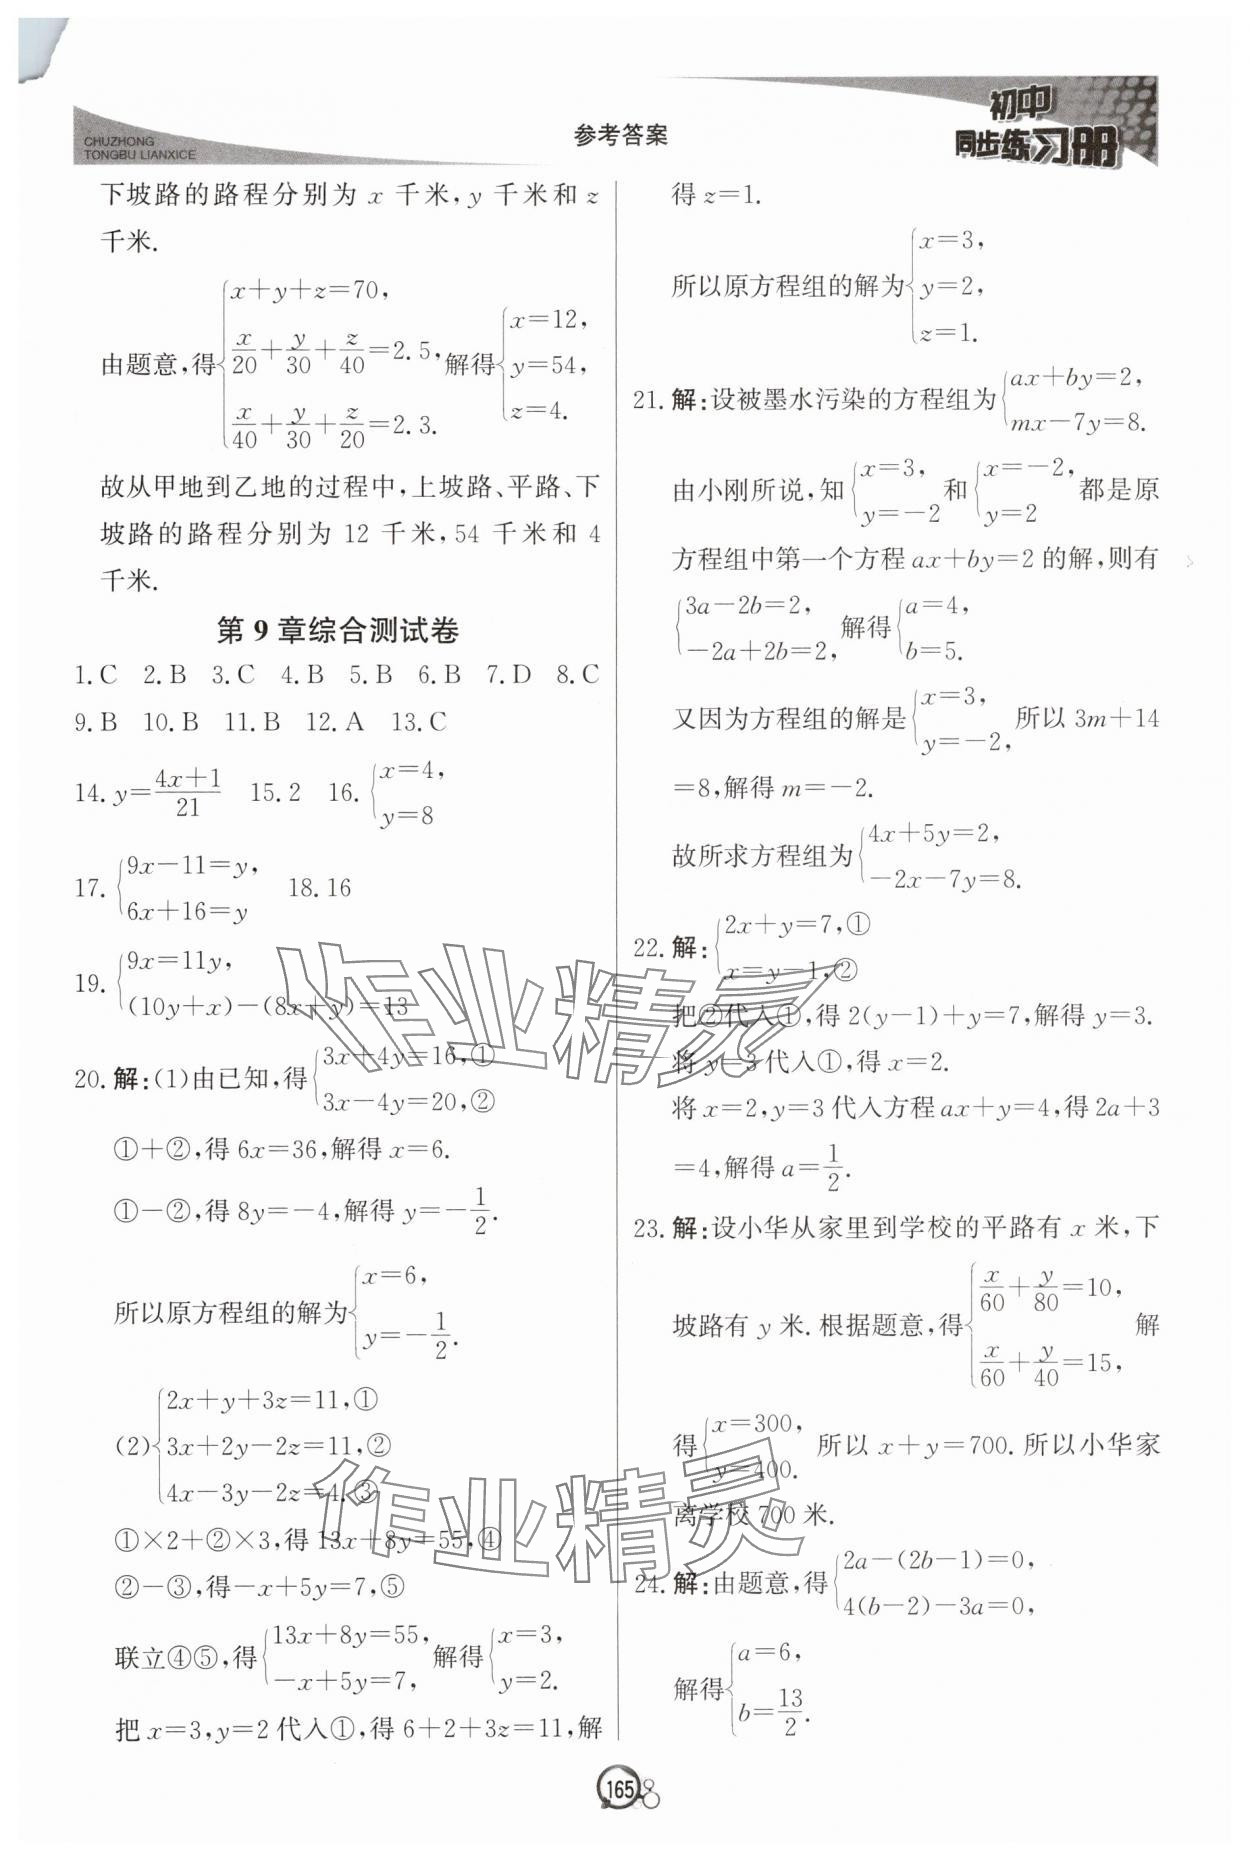 CHUZHONG
TONGBU LIANXICE
参考答案
初中
同步练习册
下坡路的路程分别为 x 千米, y 千米和 z
千米.
由题意,得{x+y+z=70, x/20+y/30+z/40=2.5, x/40+y/30+z/20=2.3. 解得{x=12, y=54, z=4.
故从甲地到乙地的过程中,上坡路、平路、下
坡路的路程分别为 12 千米,54 千米和 4
千米.
第 9 章综合测试卷
1.C 2.B 3.C 4.B 5.B 6.B 7.D 8.C
9.B 10.B 11.B 12.A 13.C
14.y=(4x+1)/21 15.2 16.{x=4, y=8
17.{9x-11=y, 6x+16=y 18.16
19.{9x=11y, (10y+x)-(8x+y)=13
20.解:(1)由已知,得{3x+4y=16,① 3x-4y=20,②
①+②,得 6x=36,解得 x=6.
①-②,得 8y=-4,解得 y=-1/2.
所以原方程组的解为{x=6, y=-1/2.
(2){2x+y+3z=11,① 3x+2y-2z=11,② 4x-3y-2z=4.③
①×2+②×3,得 13x+8y=55,④
②-③,得-x+5y=7,⑤
联立④⑤,得{13x+8y=55, -x+5y=7, 解得{x=3, y=2.
把 x=3,y=2 代入①,得 6+2+3z=11,解
得 z=1.
所以原方程组的解为{x=3, y=2, z=1.
21.解:设被墨水污染的方程组为{ax+by=2, mx-7y=8.
由小刚所说,知{x=3, y=-2 和{x=-2, y=2 都是原
方程组中第一个方程 ax+by=2 的解,则有
{3a-2b=2, -2a+2b=2, 解得{a=4, b=5.
又因为方程组的解是{x=3, y=-2, 所以 3m+14
=8,解得 m=-2.
故所求方程组为{4x+5y=2, -2x-7y=8.
22.解:{2x+y=7,① x=y-1,②
把②代入①,得 2(y-1)+y=7,解得 y=3.
将 y=3 代入①,得 x=2.
将 x=2,y=3 代入方程 ax+y=4,得 2a+3
=4,解得 a=1/2.
23.解:设小华从家里到学校的平路有 x 米,下
坡路有 y 米.根据题意,得{x/60+y/80=10, x/60+y/40=15, 解
得{x=300, y=400. 所以 x+y=700.所以小华家
离学校 700 米.
24.解:由题意,得{2a-(2b-1)=0, 4(b-2)-3a=0,
解得{a=6, b=13/2.
作业精灵
作业精灵
165